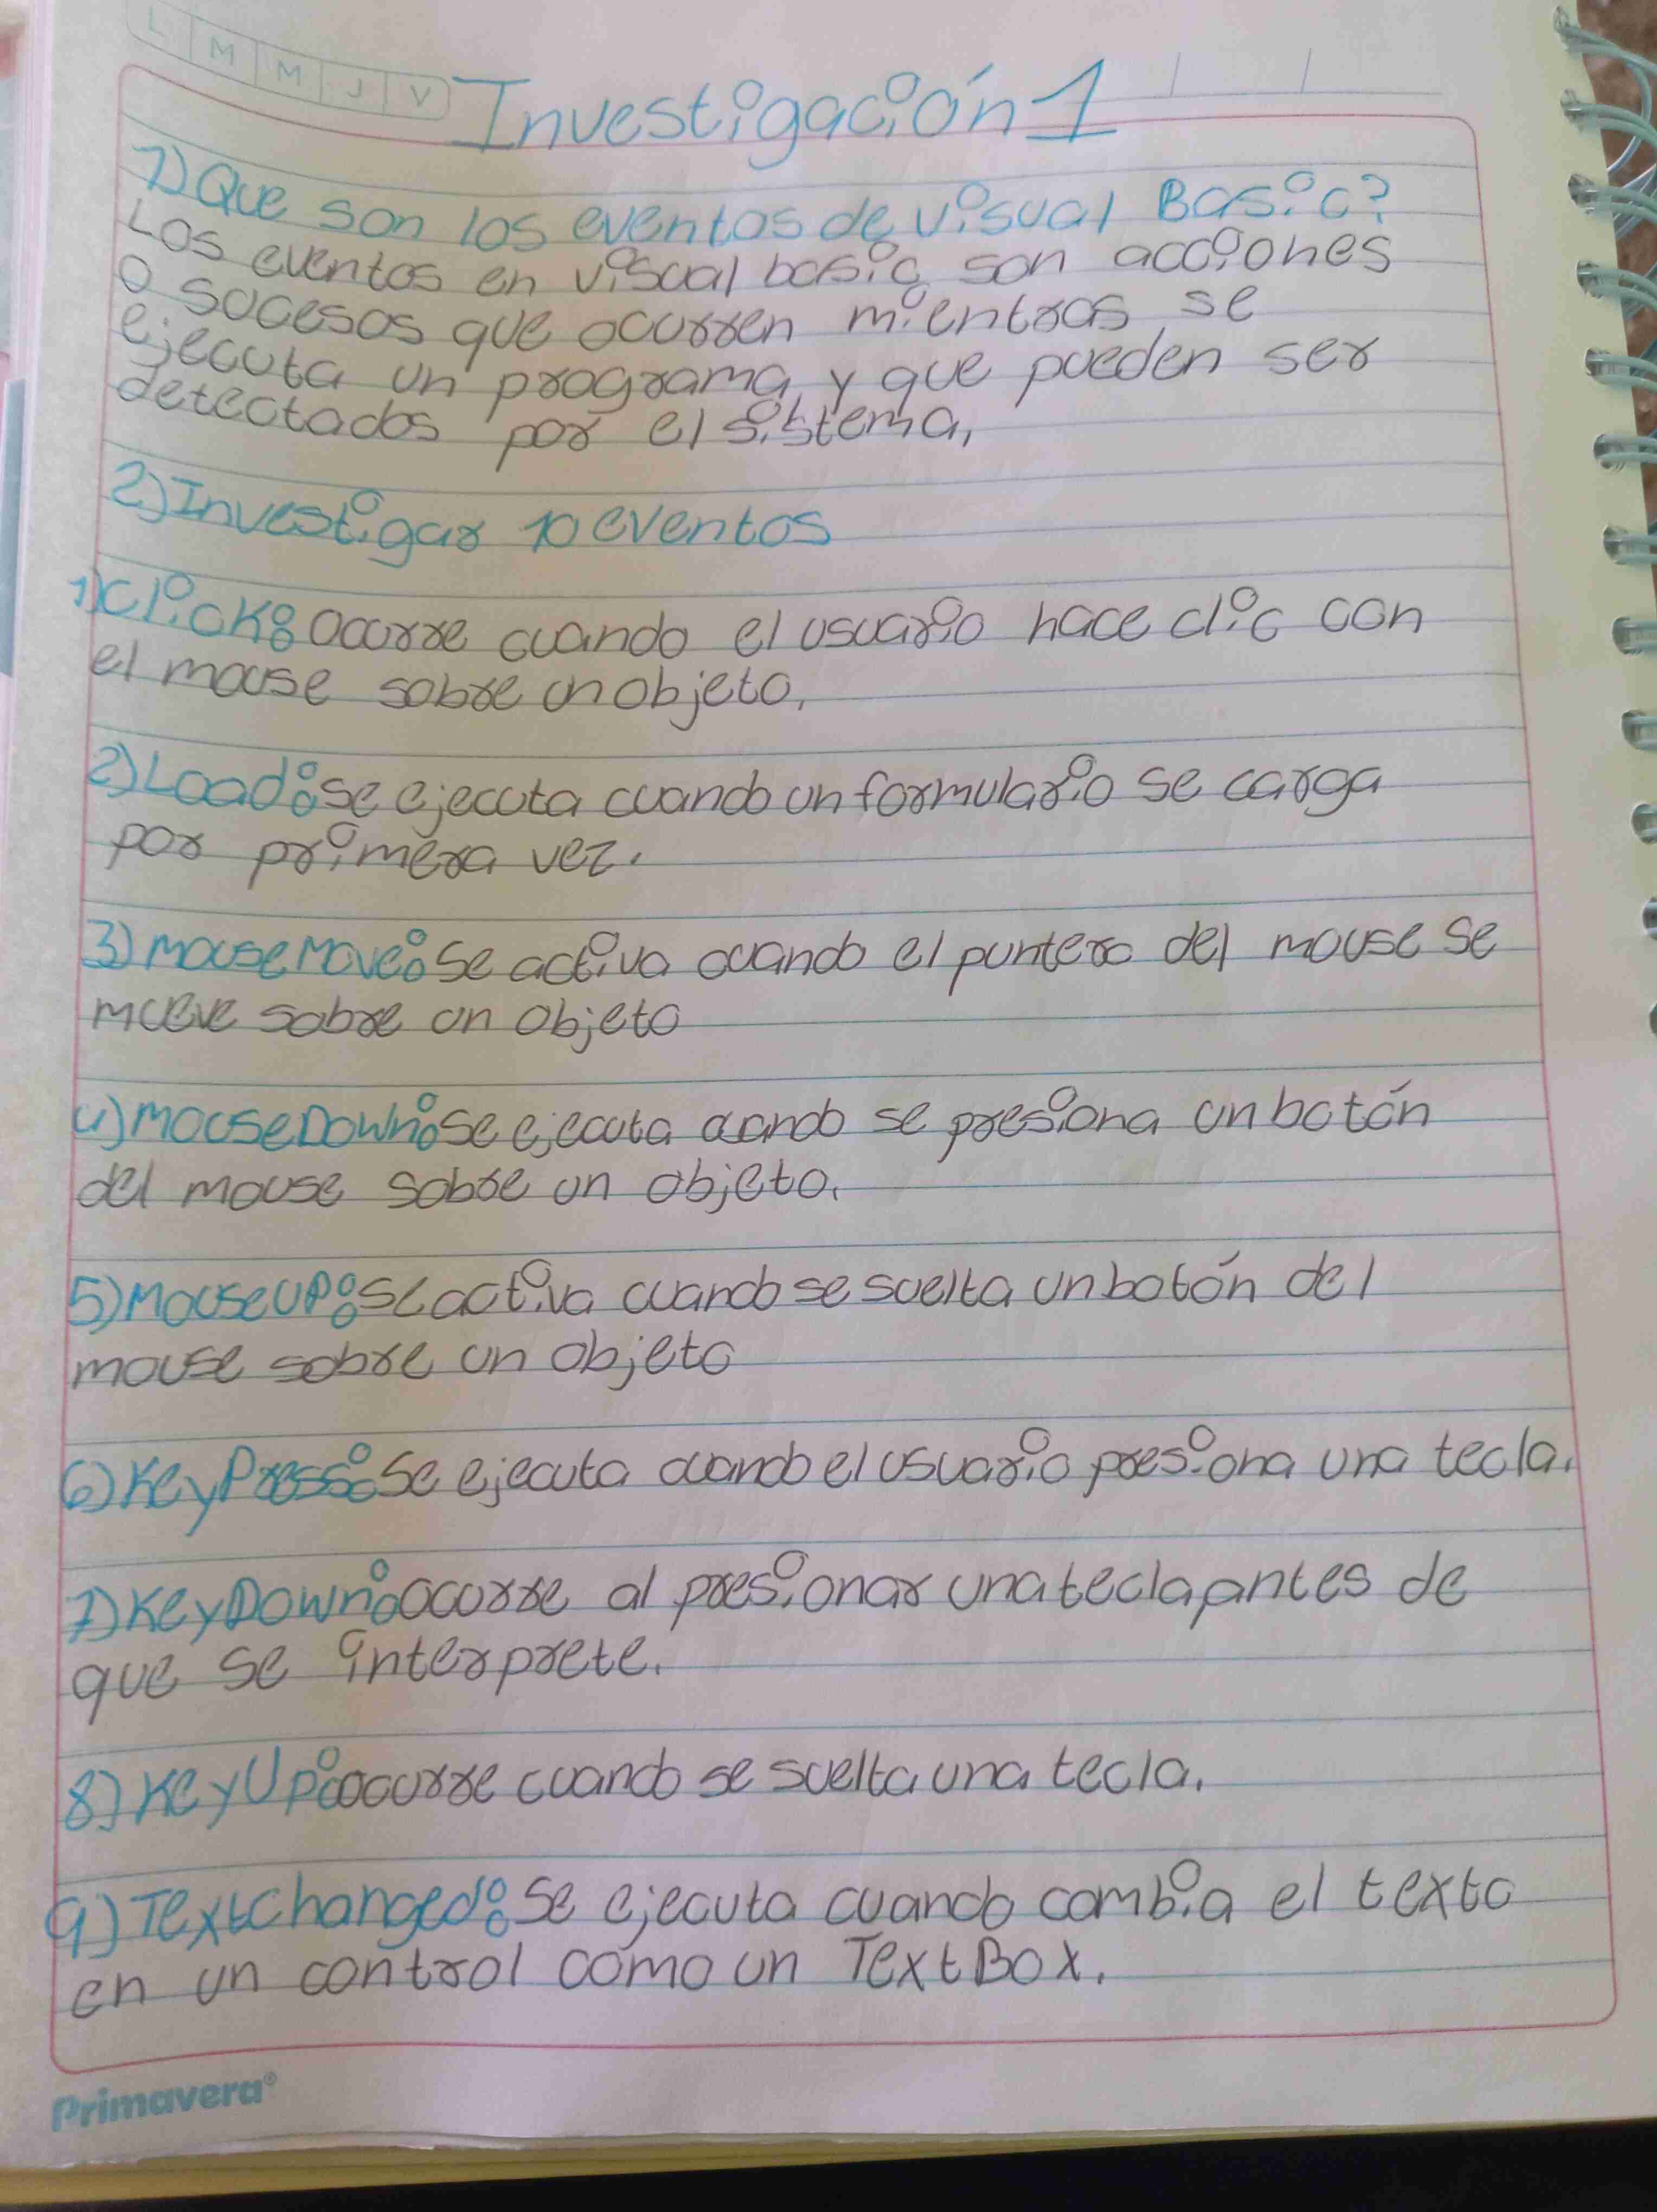 L M M J V
Investigación 1
1) Que son los eventos de visual Basic?
Los eventos en visual basic son acciones
o sucesos que ocurren mientras se
ejecuta un programa y que pueden ser
detectados por el sistema,
2) Investigar 10 eventos
1) Click: Ocurre cuando el usuario hace clic con
el mouse sobre un objeto.
2) Load: se ejecuta cuando un formulario se carga
por primera vez.
3) MouseMove: Se activa cuando el puntero del mouse se
mueve sobre un objeto
4) MouseDown: Se ejecuta cuando se presiona un botón
del mouse sobre un objeto.
5) MouseUP: Se activa cuando se suelta un botón del
mouse sobre un objeto
6) KeyPress: Se ejecuta cuando el usuario presiona una tecla.
7) KeyDown: Ocurre al presionar una tecla antes de
que se interprete.
8) KeyUp: ocurre cuando se suelta una tecla.
9) TextChanged: Se ejecuta cuando cambia el texto
en un control como un TextBox.
Primavera®